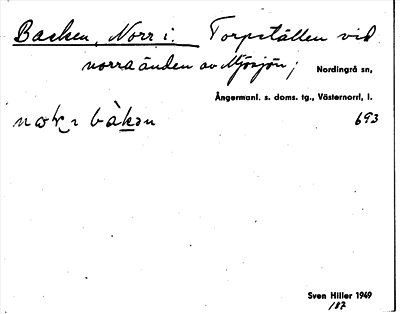 Backen, Norr i. Torpställen vid
norra änden av Mjösjön; Nordingrå sn,
Ångermanl. s. doms. tg., Västernorrl. l.
bàkən 693
Sven Hiller 1949
187